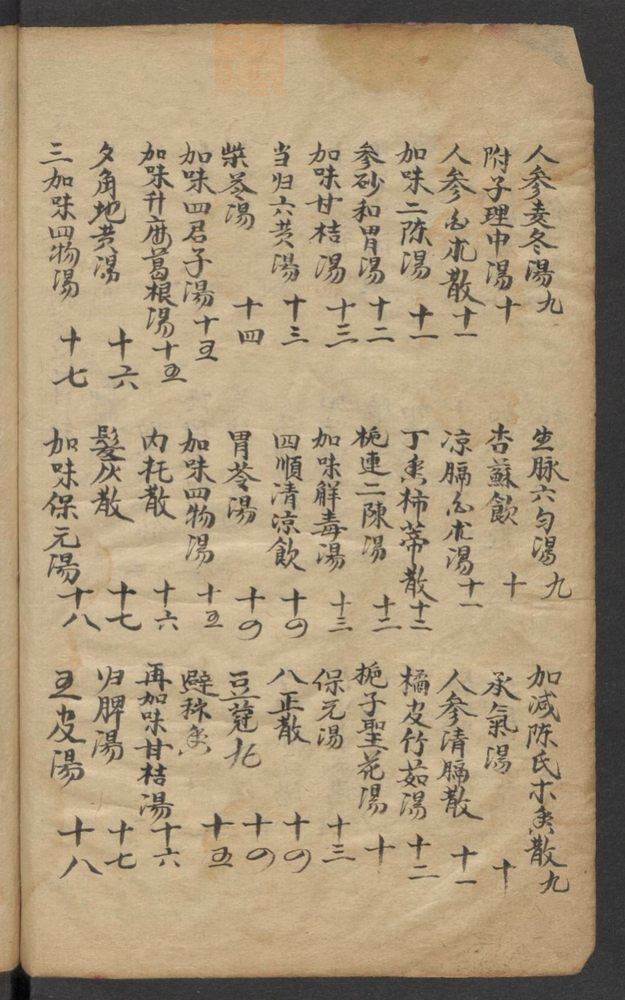 人參麦冬湯 九
生脉六勻湯 九
加减陈氏木香散 九
附子理中湯 十
杏蘇飲 十
承氣湯 十
人參白朮散 十一
凉膈白朮湯 十一
人參清膈散 十一
加味二陈湯 十一
丁香柿蒂散 十二
橘皮竹茹湯 十二
參砂和胃湯 十二
栀連二陳湯 十二
栀子聖花湯 十
加味甘桔湯 十三
加味解毒湯 十三
保元湯 十三
当归六黄湯 十三
四順清凉飲 十四
八正散 十四
柴苓湯 十四
胃苓湯 十四
豆蔻丸 十四
加味四君子湯 十五
加味四物湯 十五
辟秽香 十五
加味升麻葛根湯 十五
内托散 十六
再加味甘桔湯 十六
夕角地黄湯 十六
髮灰散 十七
归脾湯 十七
三加味四物湯 十七
加味保元湯 十八
五皮湯 十八